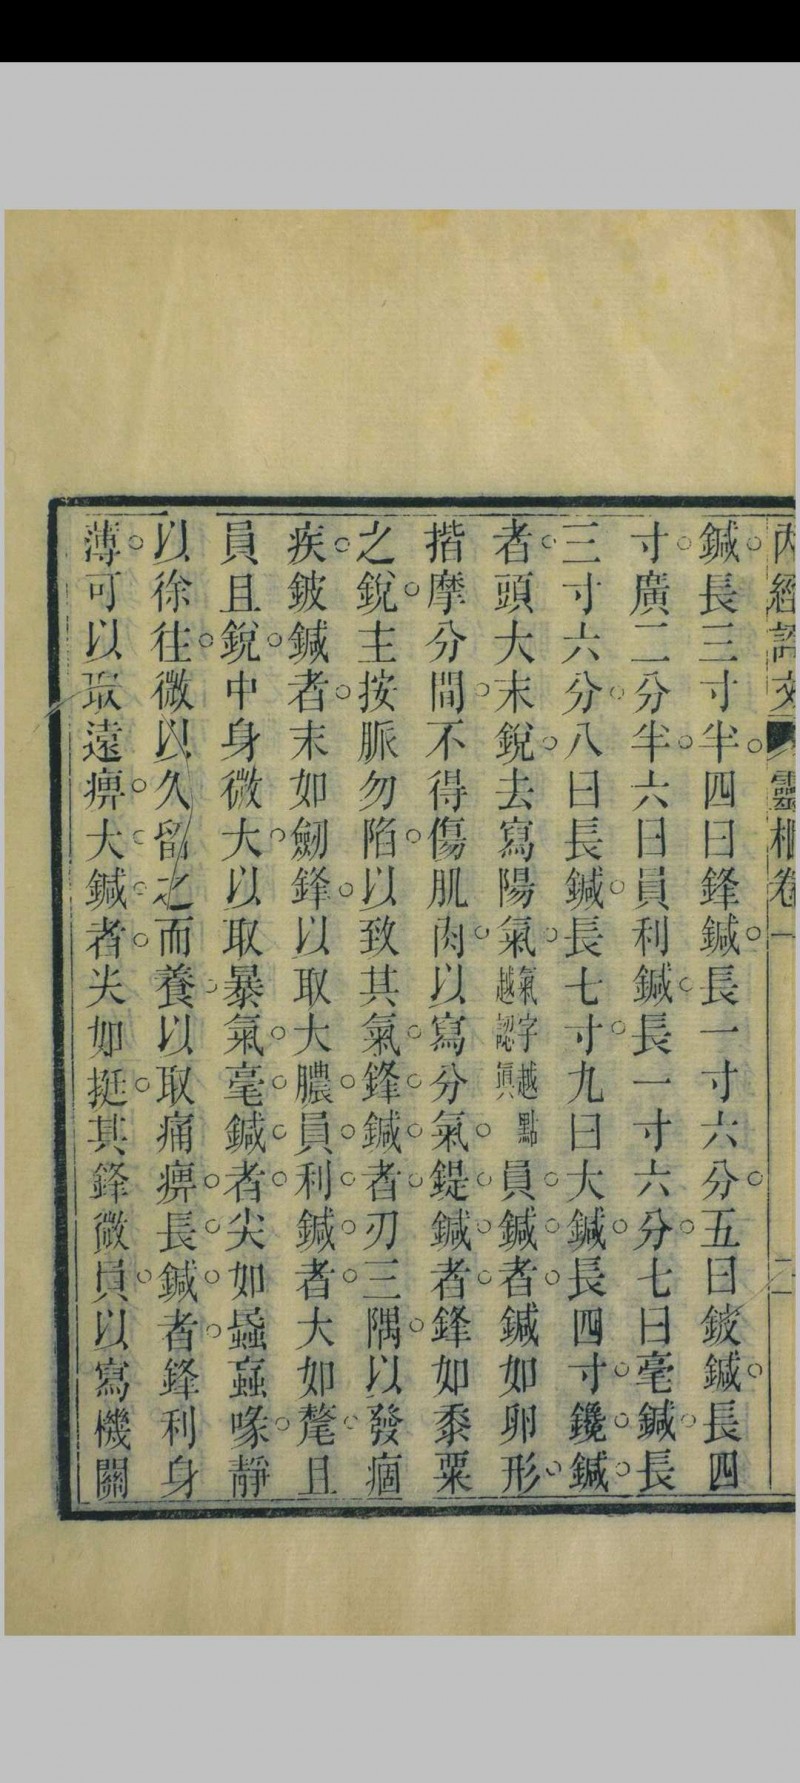 內經評文 靈樞卷一 二
鍼。長三寸半。四曰鋒鍼。長一寸六分。五曰鈹鍼。長四
寸。廣二分半。六曰員利鍼。長一寸六分。七曰毫鍼。長
三寸六分。八曰長鍼。長七寸。九曰大鍼。長四寸。鑱。鍼。
者。頭大末銳。去寫陽氣。氣字越點越認眞員。鍼。者。鍼如卵形。
揩摩分間。不得傷肌肉。以寫分氣。鍉。鍼。者。鋒如黍粟
之銳。主按脈勿陷。以致其氣。鋒。鍼。者。刃三隅。以發痼
疾。鈹鍼者。末如劒鋒。以取大膿。員。利。鍼。者。大如氂。且
員且銳。中身微大。以取暴氣。毫。鍼。者。尖如蟁䖟喙。靜
以徐往。微以久留之而養。以取痛痹。長。鍼。者。鋒利身
薄。可以取遠痹。大。鍼。者。尖如挺。其鋒微員。以寫機關